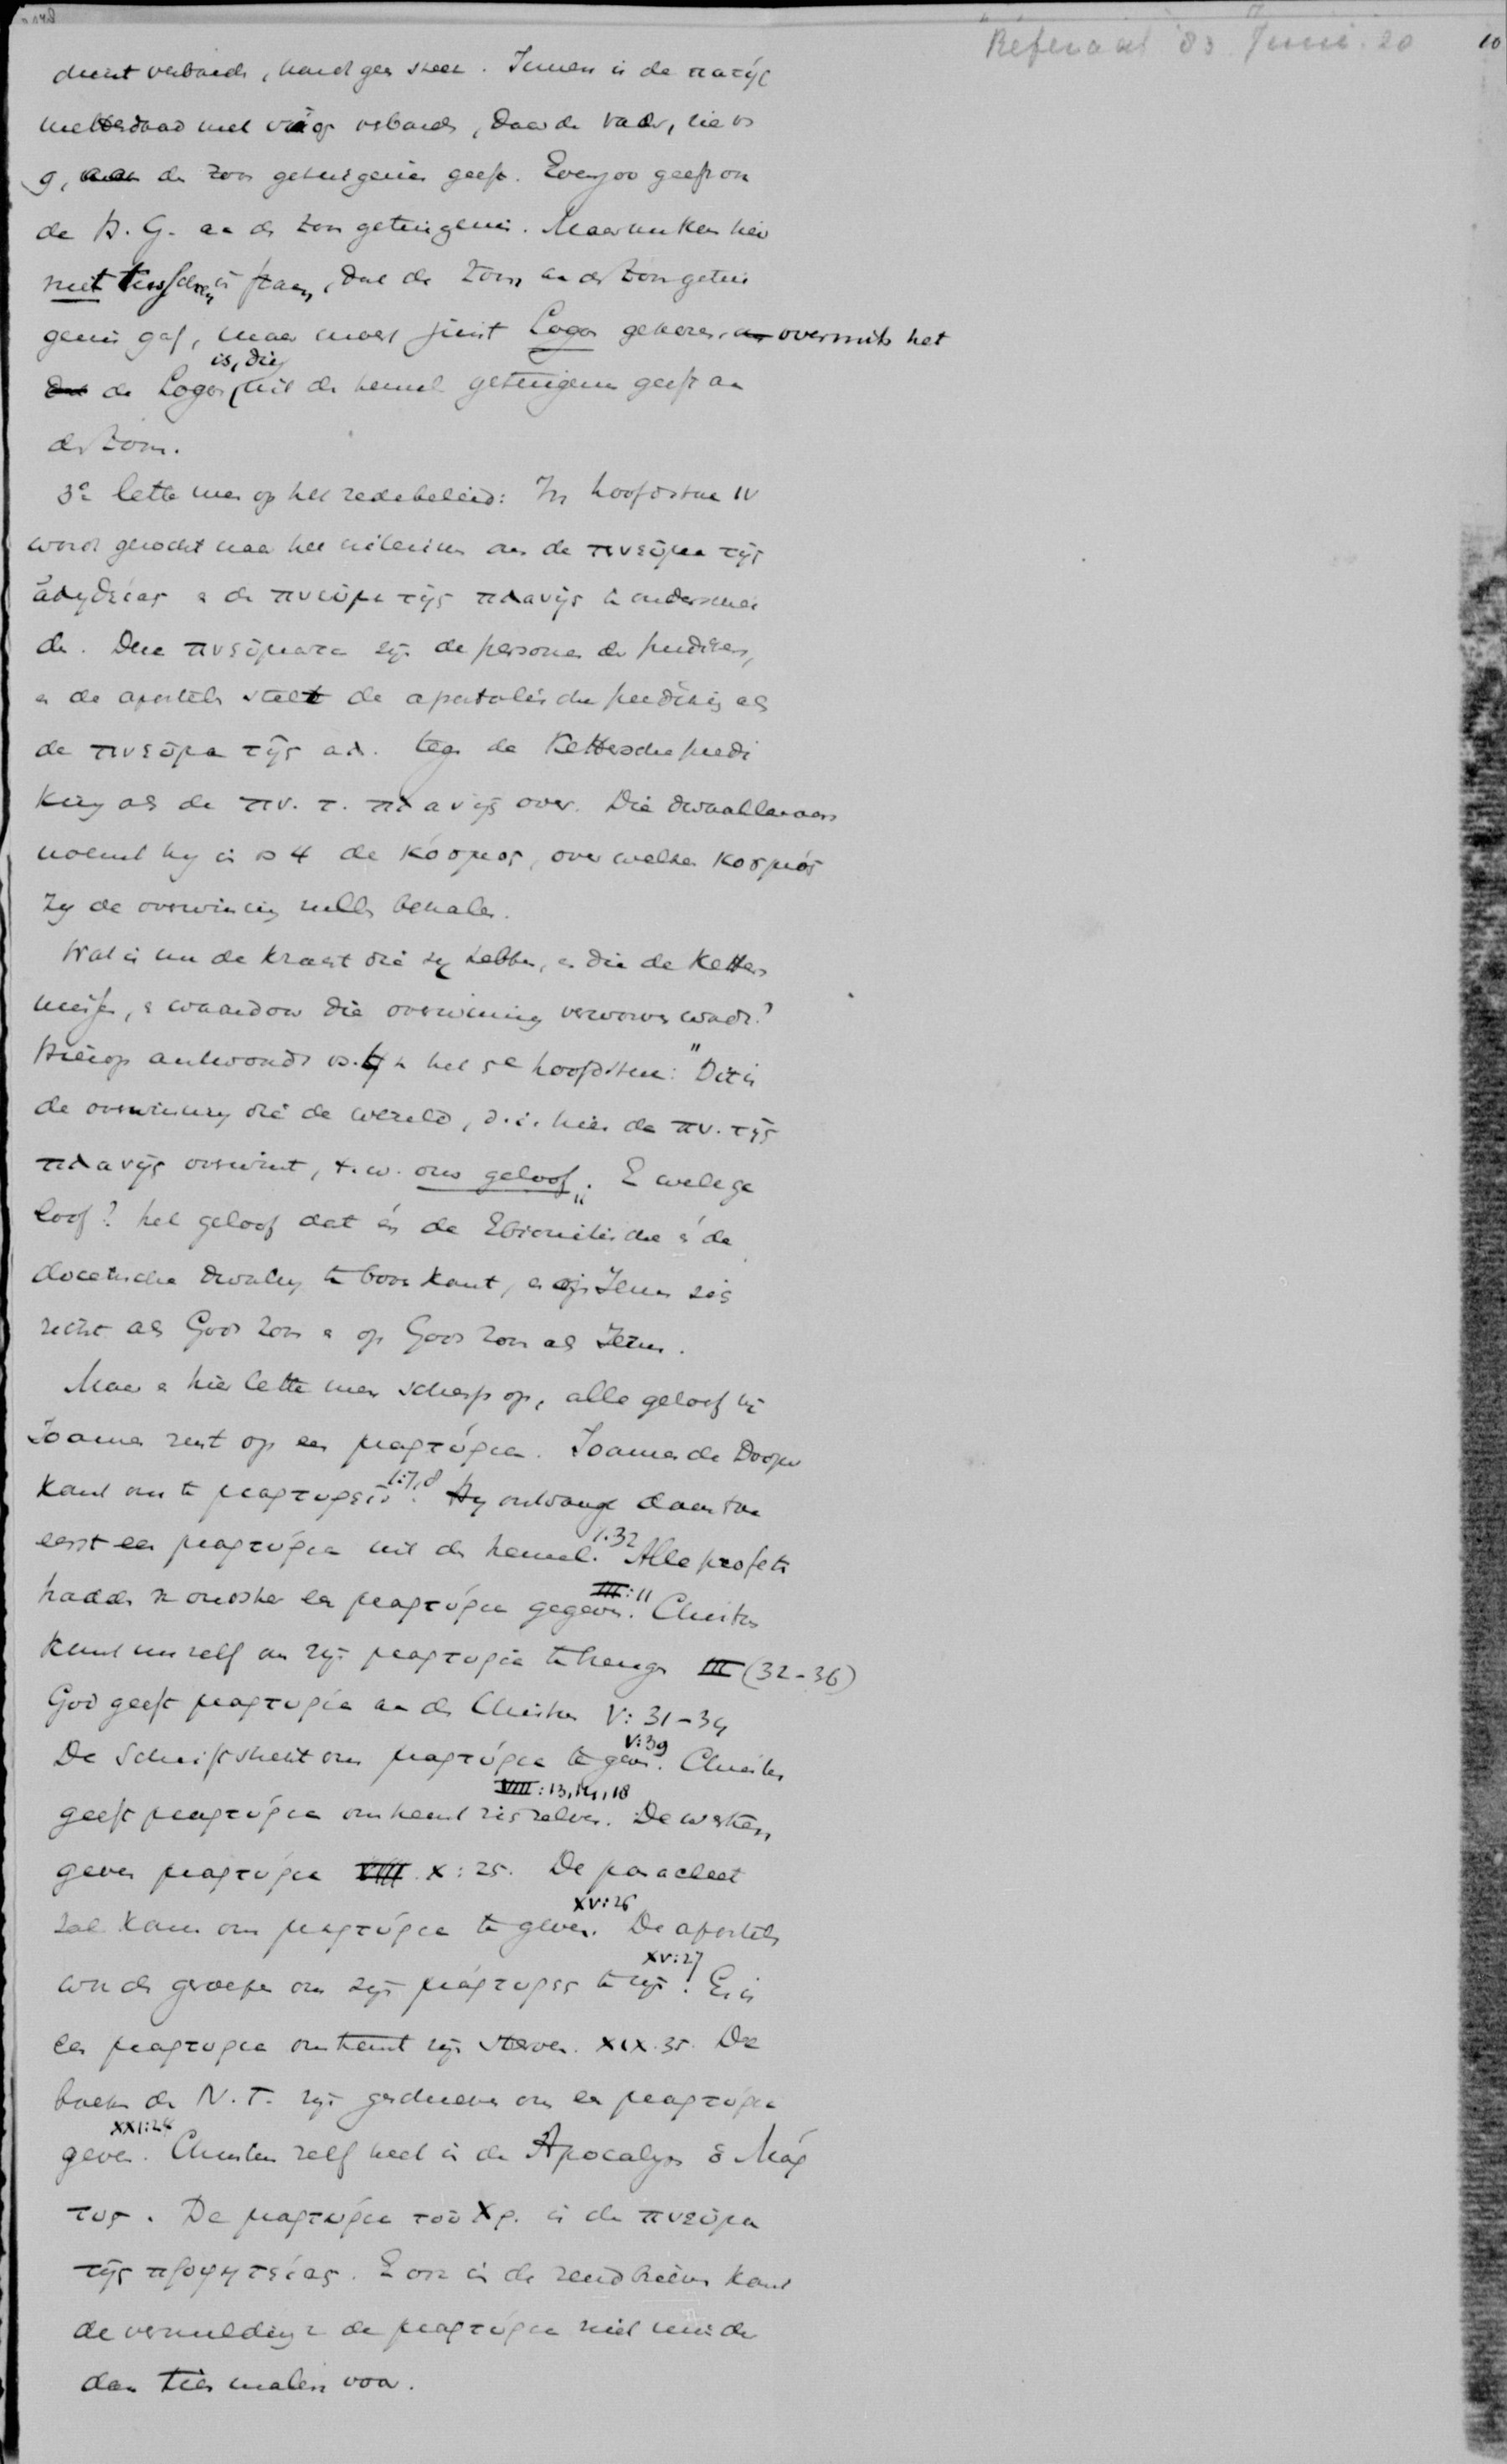 Referaat 83 Juni. 20
10
dient verbonds, houdt geen steek. Immers is de πατήρ
metterdaad met υἱός verbonds, daar de Vader, die vs
9, aan de zoon getuigenis geeft. Evenzoo geeft ook
de H. G. aan de Zoon getuigenis. Maar nu kon hier
niet tusschen in staan, dat de Zoon aan de Zoon getui
genis gaf, maar moest juist Logos gekozen, overmits het
de Logos is, die uit de hemel getuigenis geeft aan
de Zoon.
3e lette men op het redebeleid: In hoofdstuk IV
wordt gezocht naar het criterium om de πνεῦμα τῆς
ἀληθείας e de πνεῦμα τῆς πλανῆς te onderschei
de. Deze πνεῦματα zijn de personen der predikers,
e de apostel stelt de apostolische prediking als
de πνεῦμα τῆς αλ. tegen de Kettersche predi
king als de πν. τ. πλανῆς over. Die dwaalleeraars
noemt hij in vs 4 de κόσμος, over welken κοσμός
zij de overwinning zullen behalen.
Wat is nu de kracht die zij hebben, en die de Ketters
missen, e waardoor die overwinning verworven wordt?
Hierop antwoordt vs. 4 in het 5e hoofdstuk: "Dit is
de overwinning die de wereld, d. i. hier de πν. τῆς
πλανῆς overwint, t. w. ons geloof". E welk ge
loof? het geloof dat én de Ebionitische é de
docetische dwaling te boven komt, en op Jezus zich
richt als Gods Zoon e op Gods Zoon als Jezus.
Maar e hier lette men scherp op, alle geloof bij
Joannes rust op een μαρτύρια. Joannes de Dooper
komt om te μαρτυρεῖν 1:7,8. Hij ontvangt daartoe
eerst een μαρτύρια uit de hemel. 1.32 Alle profeten
hadden zulk een μαρτύρια gegeven. III:11 Christus
komt nu zelf om zijn μαρτυρία te brengen III (32-36)
God geeft μαρτυρία aan de Christus V: 31-34
De Schrift strekt om μαρτύρια te geven. V:39 Christus
geeft μαρτύρια omtrent zich zelven. VIII:13,14,18 De werken
geven μαρτύρια X: 25. De paracleet
zal komen om μαρτύρια te geven. XV:26 De apostelen
worden geroepen om zijn μάρτυρες te zijn. XV:27 Er is
een μαρτυρια omtrent zijn sterven. XIX.35. De
boeken des N. T. zijn geschreven om een μαρτύρια
geven. XXI:24 Christus zelf heet in de Apocalyps ὁ Μάρ
τυς. De μαρτύρια τοῦ Χρ. is de πνεῦμα
τῆς προφητείας. E ook in de zendbrieven komt
de vermelding e de μαρτύρια niet minder
dan tien malen voor.